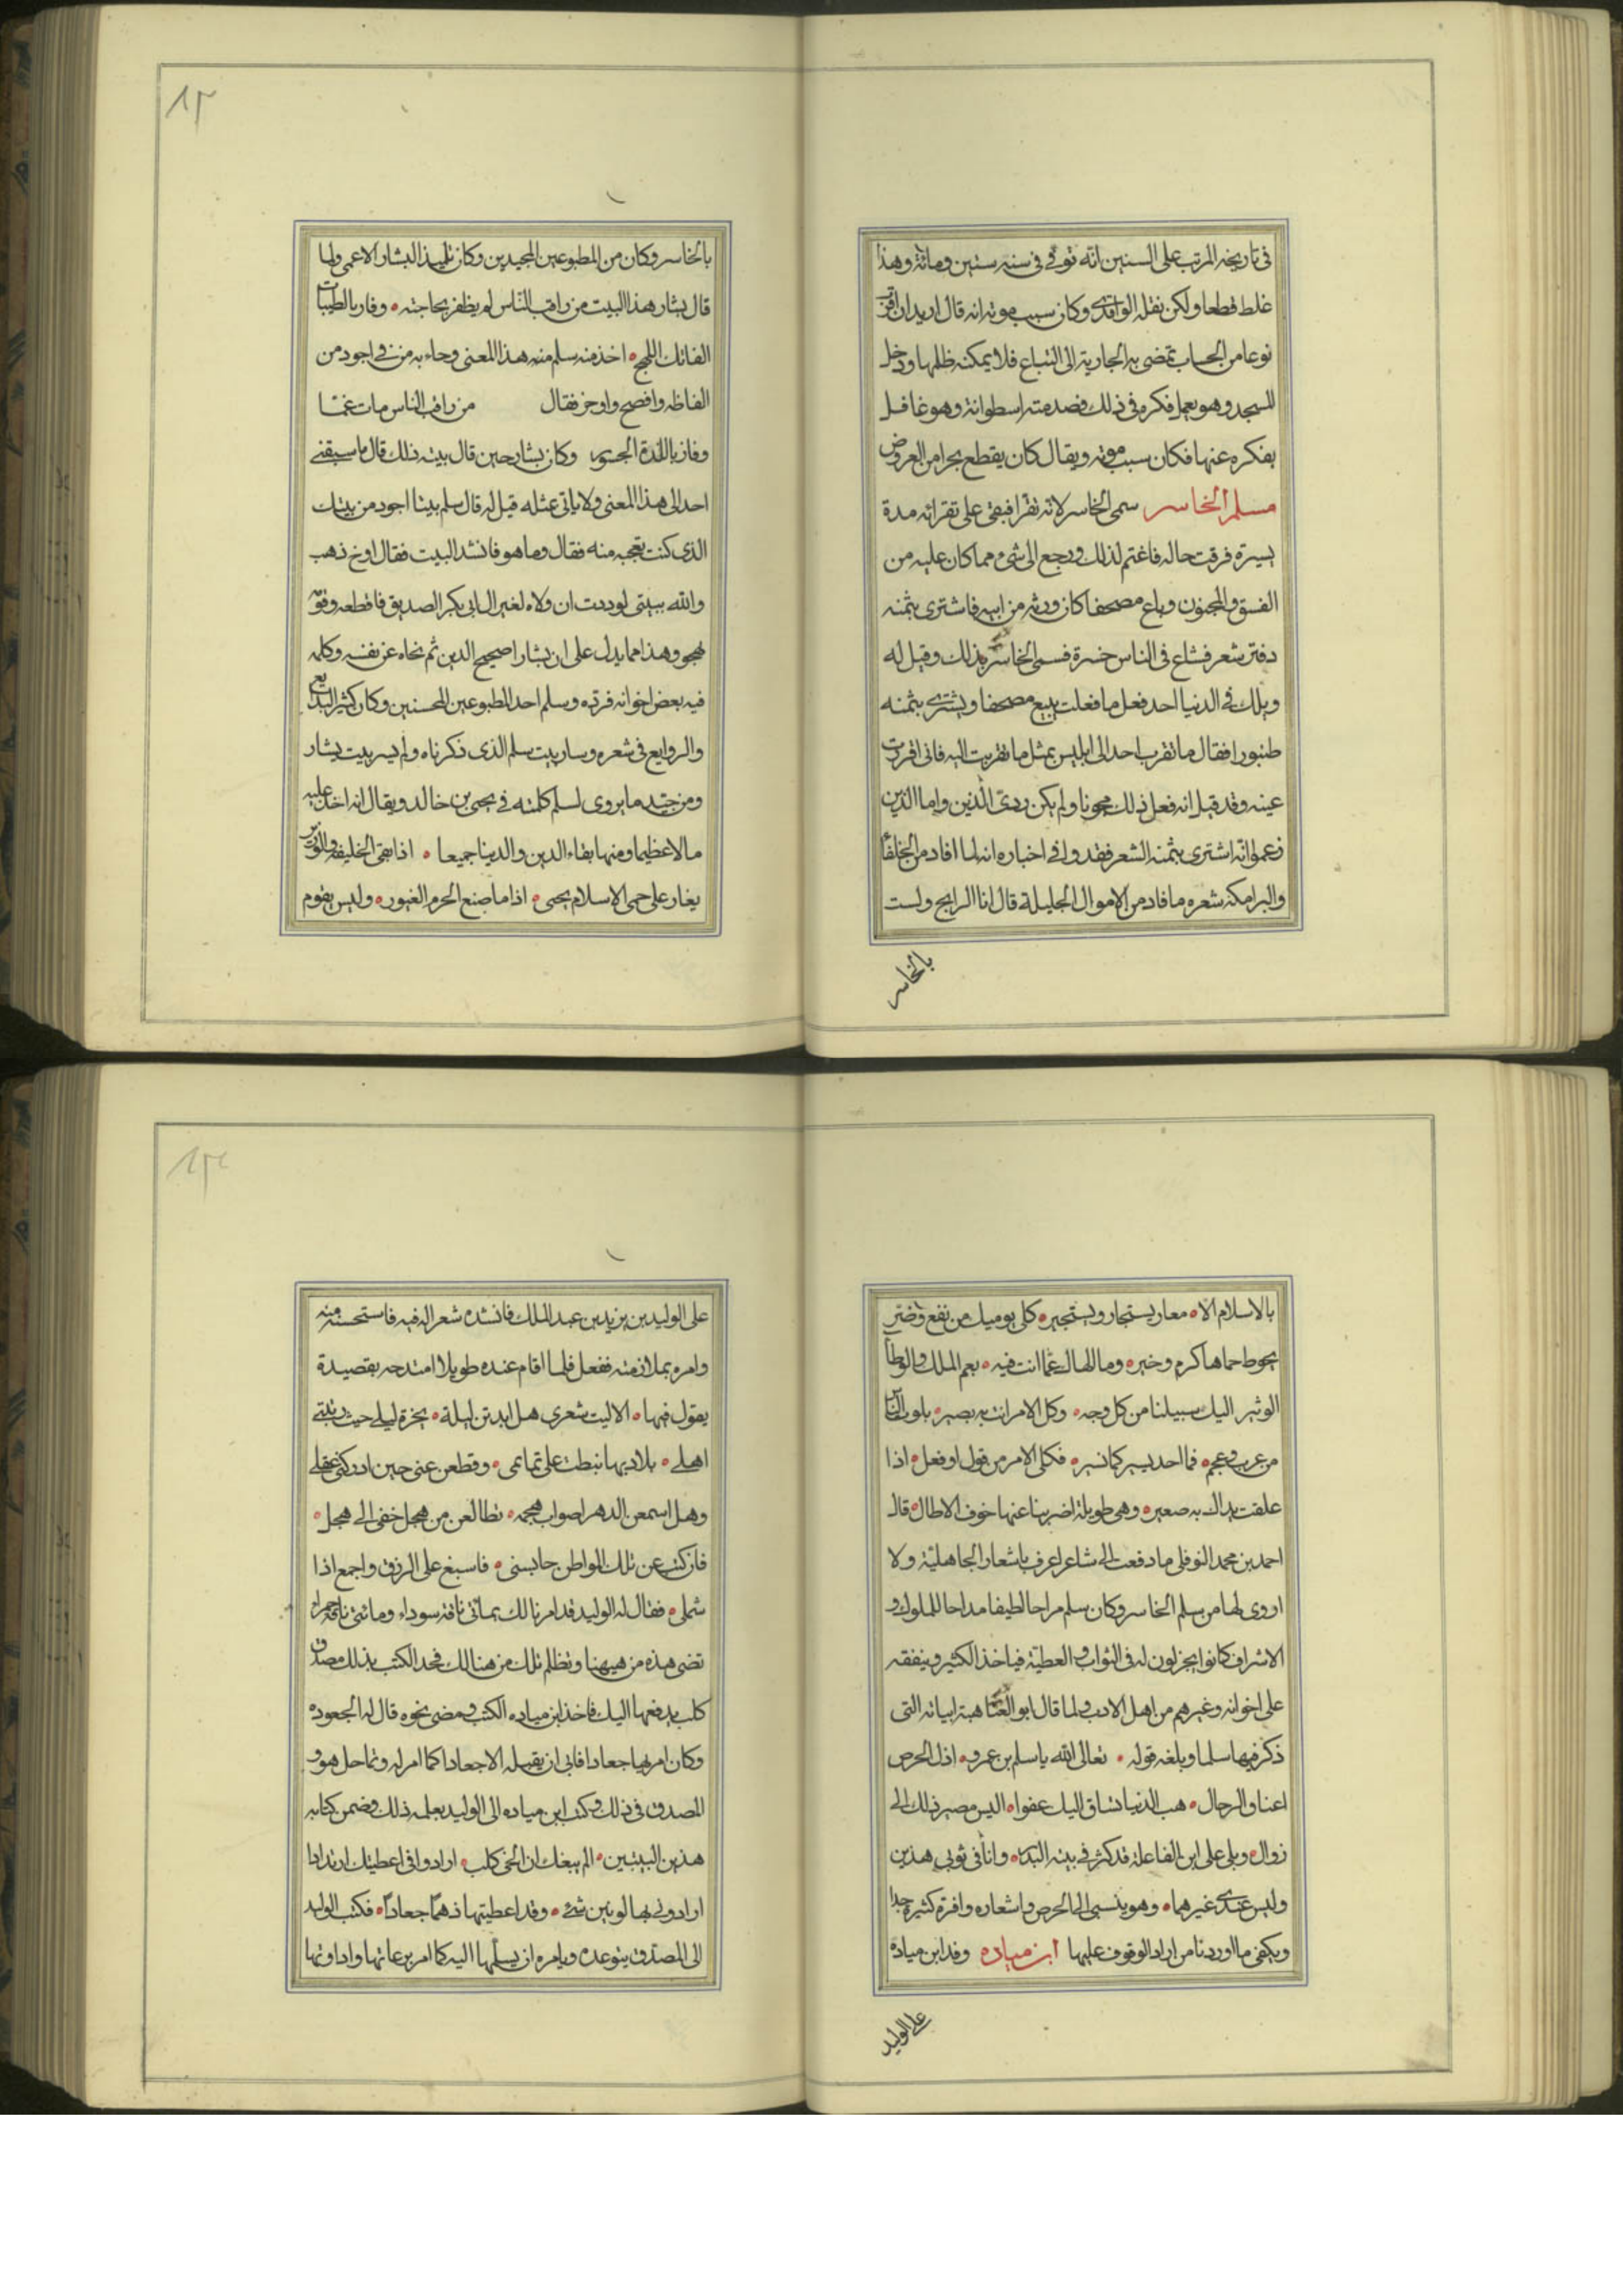 في تاريخه المرتب على السنين انه توفي في سنه ستين ومائة وهذا
غلط قطعا ولكن نقله الواقدي وكان سبب موته انه قال اريد ان اقرب
نوعا من الحساب تمضي به الجارية الى البياع فلا يمكنه ظلمها ودخل
المسجد وهو يعمل فكره في ذلك فصدمته اسطوانة وهو غافل
بفكره عنها فكان سبب موته ويقال كان يقطع بحرا من العروض
مسلم الخاسر سمى الخاسر لانه تقرا فبقى على تقرائه مدة
يسيرة فرقت حاله فاغتم لذلك ورجع الى شيء مما كان عليه من
الفسق والمجون وباع مصحفا كان ورثه من ابيه فاشترى بثمنه
دفتر شعر فشاع في الناس خسرة فسمى الخاسر بذلك وقيل له
ويلك في الدنيا احد فعل ما فعلت يبيع مصحفا ويشترى بثمنه
طنبورا فقال ما تقرب احد الى ابليس بمثل ما تقربت اليه فاني اقررت
عينه وقد قيل انه فعل ذلك مجونا ولم يكن ردي الدين واما الذين
زعموا انه اشترى بثمنه الشعر فقد روا في اخباره انه لما افاد من الخلفا
والبرامكه شعره ما فاد من الاموال الجليلة قال انا الرابح ولست
بالخاسر
١٢
بالخاسر وكان من المطبوعين المجيدين وكان تلميذ البشار الاعمى ولما
قال بشار هذا البيت من راقب الناس لم يظفر بحاجته • وفاز بالطيبات
الفاتك اللهج • اخذ منه سلم منه هذا المعنى وجاء به من في اجود من
الفاظه وافصح واوجز فقال من راقب الناس مات غما
وفاز باللذة الجسور وكان بشار حين قال بيته ذلك قال ما سبقني
احد الى هذا المعنى ولا ياتي بمثله قيل له قال سلم بيتا اجود من بيتك
الذي كنت تعجبه منه فقال وما هو فانشد البيت فقال اوخ ذهب
والله ببيتي لوددت ان ولاه لغير ال ابي بكر الصديق فاقطعه وقوه
لهجو وهذا مما يدل على ان بشارا صحيح الدين ثم نحاه عن نفسه وكلمه
فيه بعض اخوانه فرده وسلم احد المطبوعين المحسنين وكان كثير البدايع
والروايع في شعره وسار بيت سلم الذي ذكرناه ولم يسر بيت بشار
ومن جيد ما يروى لسلم كلمته في يحيى بن خالد ويقال انه اخذ عليه
مالا عظيما ومنها بقاء الدين والدينا جميعا • اذا بقى الخليفة والوزير
يغار على حمى الاسلام يحيى • اذا ما صنع الحرم الغيور • وليس يقوم
بالاسلام الا • معار يستجار ويستجير • كلى يوميك من نفع وضر
يحوط حماها كرم وخير • وما الهاك عما انت فيه • نعم الملك والوطأ
الوثير اليك سبيلنا من كل وجه • وكل الامر انت به بصير • بلوت الناس
من عرب وعجم • فما احد يسير كما تسير • فكل الامر من قول او فعل • اذا
علقت يداك به صعير • وهي طويلة اضربنا عنها خوف الاطال • قال
احمد بن محمد النوفلي ما دفعت الى شاعر اعرف باشعار الجاهلية ولا
اروى لها من سلم الخاسر وكان سلم مزاحا لطيفا مداحا للملوك و
الاشراف كانوا يجزلون له في الثواب والعطية فياخذ الكثير وينفقه
على اخوانه وغيرهم من اهل الادب ولما قال ابو العتاهية ابياته التي
ذكر فيها سلما وبلغه قوله • تعالى الله يا سلم بن عمرو • اذل الحرص
اعناق الرجال • هب الدنيا تساق اليك عفوا • اليس مصير ذلك الى
زوال • ويلى على ابن الفاعلة قد كنز في بيته البدر • وانا في ثوبي هذين
وليس عندي غيرهما • وهو ينسبى الى الحرص واشعاره وافرة كثيرة جدا
ويكفي ما اوردنا من اراد الوقوف عليها ابن مياده وفد ابن مياده
على الوليد
١٣
على الوليد بن يزيد بن عبد الملك فانشده شعرا له فيه فاستحسنه منه
وامره بملازمته ففعل فلما اقام عنده طويلا امتدحه بقصيدة
يقول فيها • الا ليت شعرى هل ابيتن ليلة • بحرة ليلى حيث ربتنى
اهلى • بلاد بها نيطت على تمائمى • وقطعن عنى حين ادركنى عقلى
وهل اسمعن الدهر اصواب هجمه • تطالعن من هجل خفى الى هجل •
فان كنت عن تلك المواطن حابسنى • فاسبغ على الرزق واجمع اذا
شملى • فقال له الوليد قد امرنا لك بمائى ناقة سوداء ومائتى ناقة حمراء
تضى هذه من هيهنا وتظلم تلك من هنالك فخد الكتب بذلك مصدق
كلب يدفعها اليك فاخذ ابن مياده الكتب ومضى نحوه قال له الجعوده
وكان امر بها جعادا فابى ان يقبله الا جعادا كما امر له وتماحل هو و
المصدق في ذلك وكتب ابن مياده الى الوليد يعلمه ذلك وضمن كتابه
هذين البيتين • الم يبغك ان الحي كلب • ارادوا في اعطيتك ارتدادا
ارادوني بها لونين شتى • وقد اعطيتها دهما جعادا • فكتب الوليد
الى المصدق يتوعده ويامره ان يسلمها اليه كما امر برعاتها واداوتها